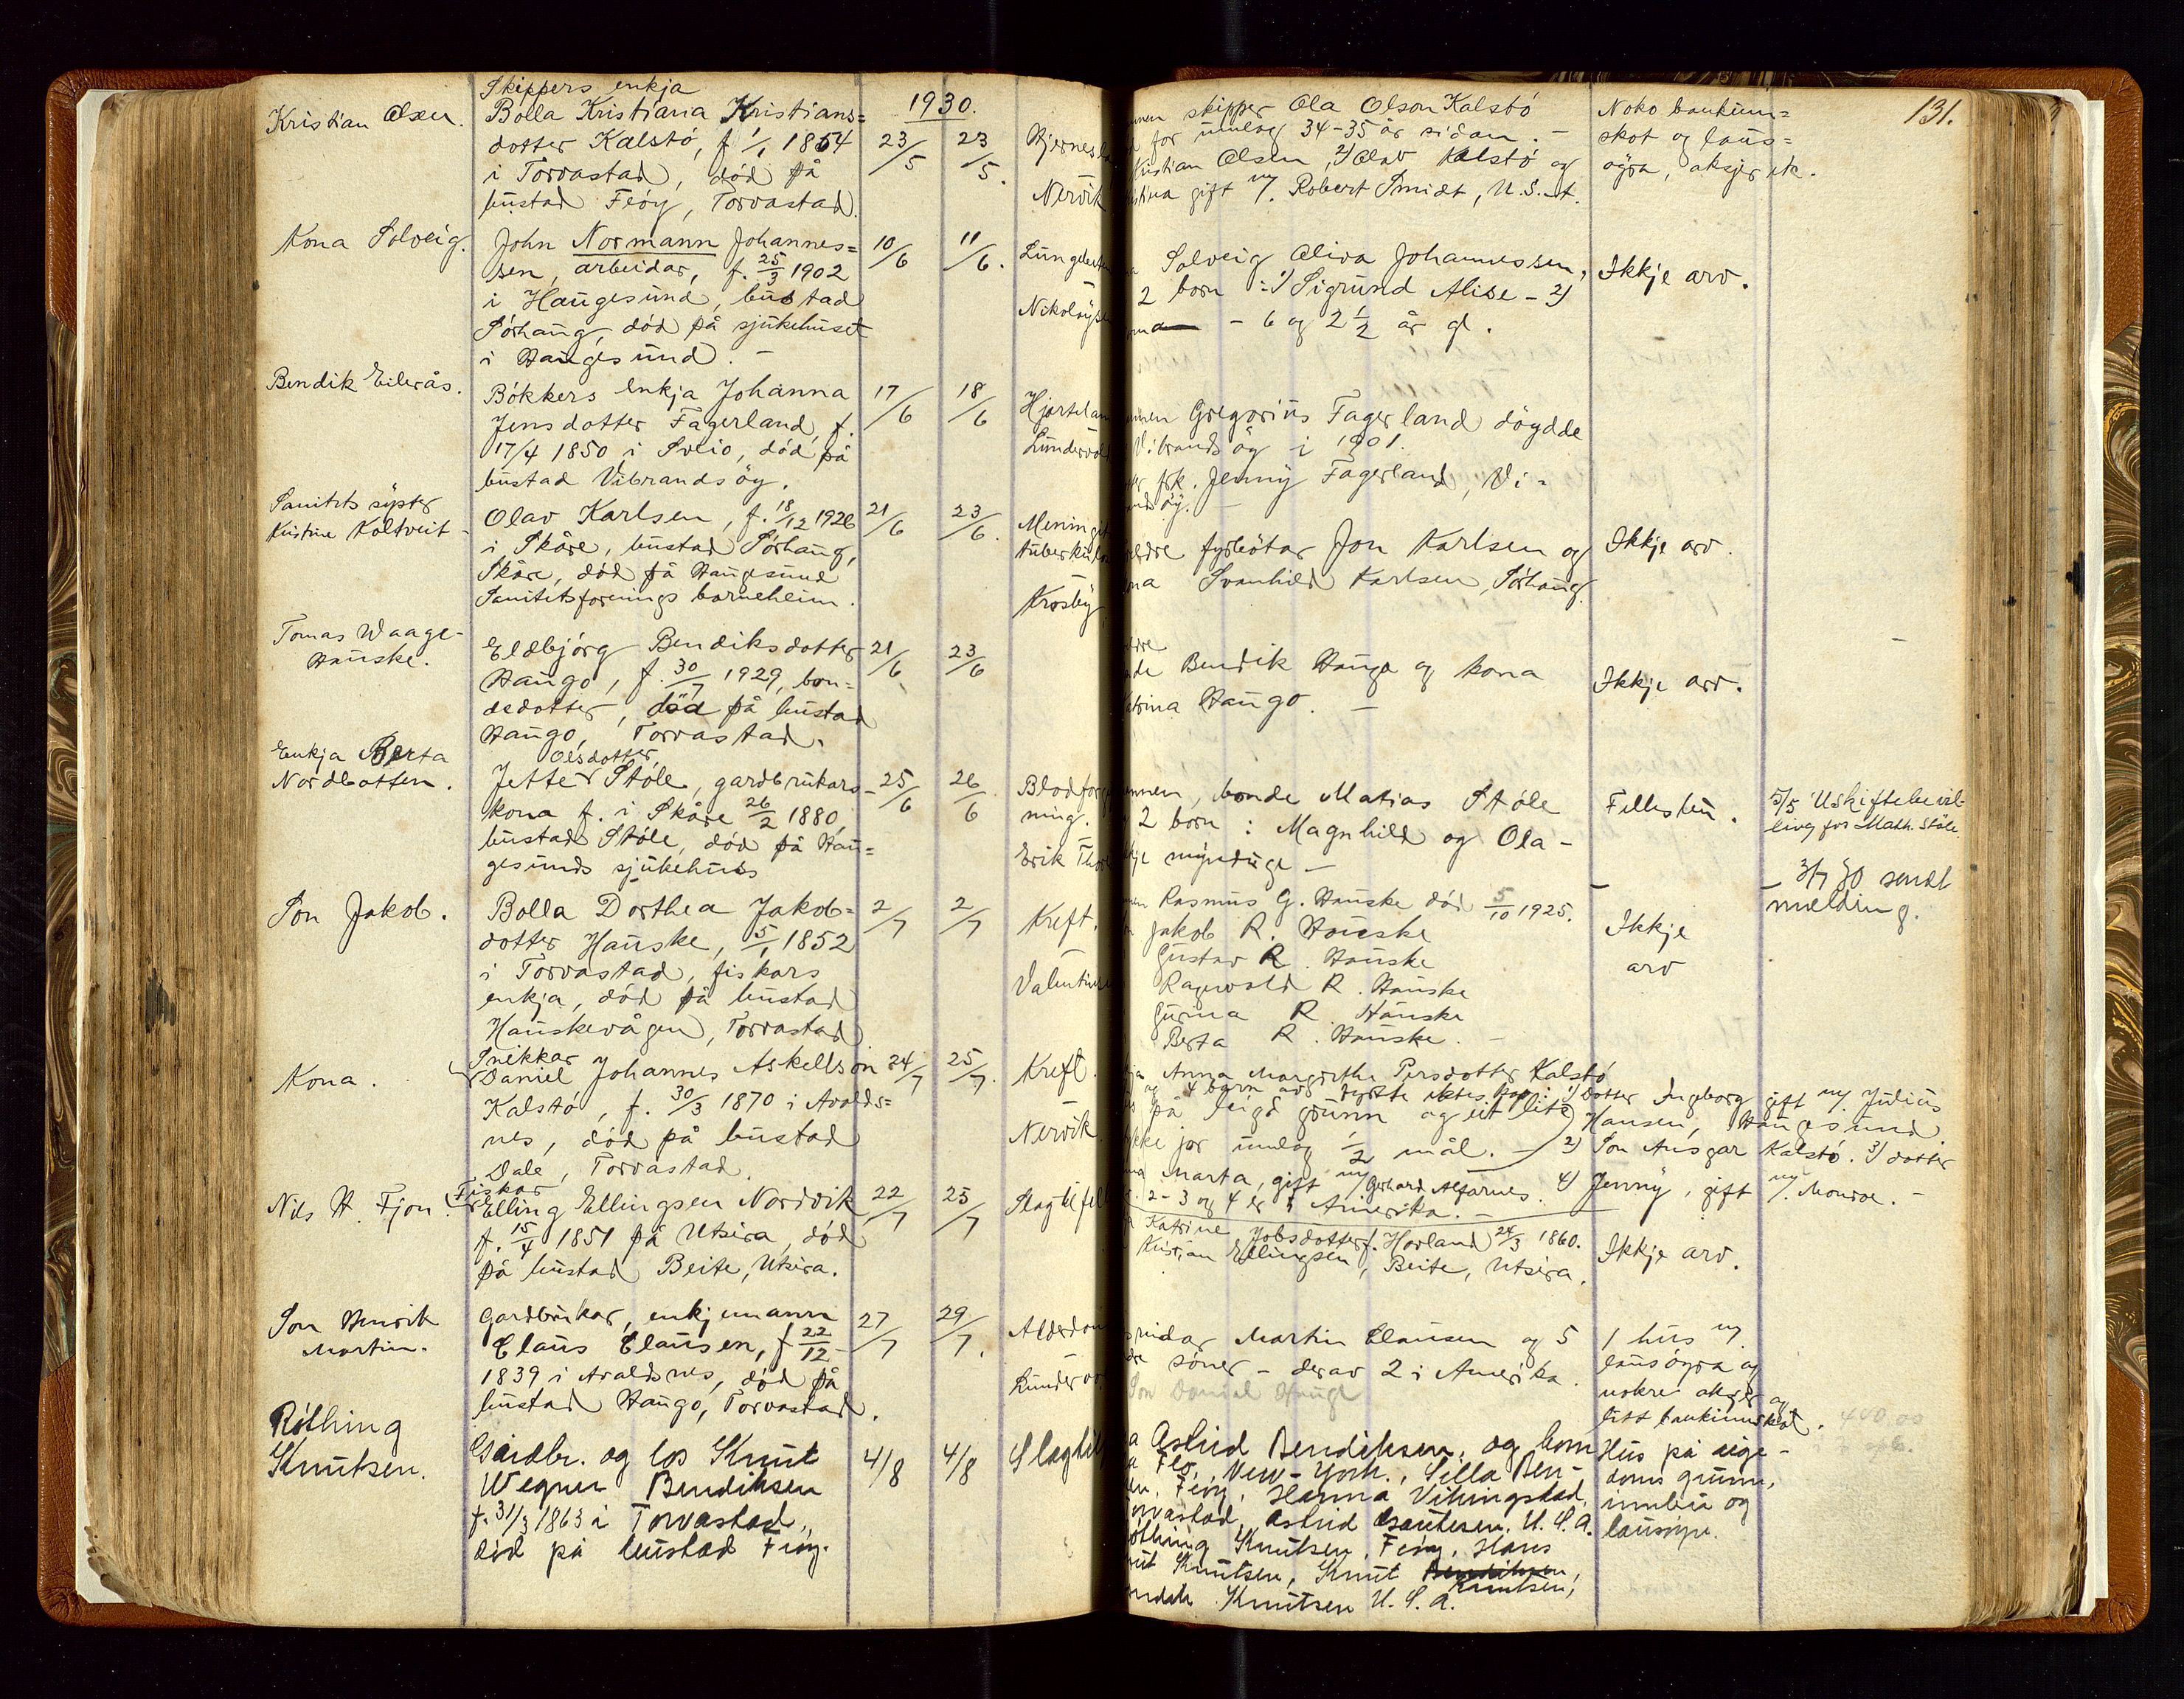 131.
1930.
Kristian Olsen.
Skippers enkja
Bolla Kristiana Kristians=
dotter Kalstó, f 1/1 1854
i Torvastad, død på
bustad Feóy, Torvastad.
23/5 23/5.
Bjernes
Nervik
skipper Ola Olson Kalstó
for umlag 34-35 år sidan. -
Kristian Olsen, 2) Olav Kalstó og
gift m/. Robert Smidt, U.S.A.
Noko bankinn=
skot og laus=
øyra, aksjer etc.
Kona Solveig.
John Normann Johannes=
sen, arbeidar, f. 25/3 1902
i Haugesund, bustad
Sórhaug, død på sjukehuset
i Haugesund. -
10/6 11/6.
Lungebeten
Nikolaysen
Solveig Oliva Johannessen,
2 born :1) Sigrund Alise - 2)
- 6 og 2 1/2 år gl.
Ikkje arv.
Bendik Eilerås.
Bókkers enkja Johanna
Jensdotter Fagerland, f.
17/4 1850 i Sveio, død på
bustad Vibrandsóy.
17/6 18/6
Hjartelam
Lundervold
Gregorius Fagerland dóydde
Vibrandsóy i 1901.
frk. Jenny Fagerland, Vi=
Sanitets syster
Kristine Kaltveit -
Olav Karlsen, f. 18/12 1926
i Skåre, bustad Sórhaug,
Skåre, død på Haugesund
Sanitetsforenings barneheim.
21/6 23/6.
Mening
tuberkul
Krosby
fyrbótar Jon Karlsen og
Svanhild Karlsen, Sórhaug.
Ikkje arv.
Tomas Waage-
Hauske.
Eldbjórg Bendiksdotter
Haugo, f. 30/7 1929, bon=
dedotter, død på bustad
Haugo, Torvastad.
21/6 23/6
Bendik Hauga og kona
Haugo. -
Ikkje arv.
Enkja Berta
Nordbotten.
Olsdotter,
Jette Stóle, gardbrukars-
kona f. i Skåre 26/2 1880,
bustad Stóle, død på Hau=
gesunds sjukehus
25/6 26/6
Blodforg
ning.
Erik Thor
bonde Matias Stóle
2 born : Magnhild og Ola -
myndige -
Fellesbu.
5/5 Uskiftebevil-
ling for Math. Stóle
- 3/7 30 sendt
melding.
Son Jakob.
Bolla Dorthea Jakob=
dotter Hauske, 5/1 1852
i Torvastad, fiskars
enkja, død på bustad
Hauskevågen, Torvastad
2/7 2/7
Kreft.
Valentin
Rasmus G. Hauske død 5/10 1925.
Jakob R. Hauske
Gustav R. Hauske
Ragnvald R. Hauske
Gurina R. Hauske
Berta R. Hauske. -
Ikkje
arv
Kona.
Snikkar
Daniel Johannes Askellson
Kalstó, f. 30/3 1870 i Avalds=
nes, død på bustad
Dale, Torvastad
24/7 25/7.
Kreft.
Nervik
Anna Margrethe Persdotter Kalstó
og 4 barn 1) dotter Ingeborg gift m/ Julius
på leigd grunn og eit lite Hansen, Haugesund
jor umlag 1/2 mål. - 2) Son Ansgar Kalstó. 3) dotter
Marta, gift m/ Gerhard Alfarnes. 4) Jenny, gift m/. Monroe. -
2-3 og 4 er i Amerika. -
Nils H. Fjon.
Fiskar
Elling Ellingsen Nordvik
f. 15/4 1851 på Utsira, død
på bustad Beite, Utsira.
22/7 25/7
Slagtilfell
Katrine Jobsdotter f. Horland 24/3 1860.
Ellingsen, Beite, Utsira.
Ikkje arv.
Son Henrik
Martin.
Gardbrukar, enkjemann
Claus Clausen, f 22/12
1839 i Avaldsnes, død på
bustad Haugo, Torvastad.
27/7 29/7.
Alderdom
Lundervo
Martin Clausen og 5
søner - derav 2 i Amerika.
Son Daniel Hauge
1 hus m/.
lausóyra og
nokre aksjer og
litt bankinnskot.
400.00
Róthing
Knutsen.
Gardbr. og los Knut
Wegner Bendiksen
f. 31/3 1863 i Torvastad,
død på bustad Feøy.
4/8 4/8
Slagtil
Astrid Bendiksen, og born
New-York., Silla Ben-
Feøy, Hanna Vikingstad,
Torvastad, Astrid U.S.A.
Knutsen, Feøy, Hans
Knutsen, Knut Bendiksen,
Knutsen,
Knutsen U.S.A.
Hus på eige-
doms grunn,
innbu og
lausøyre.